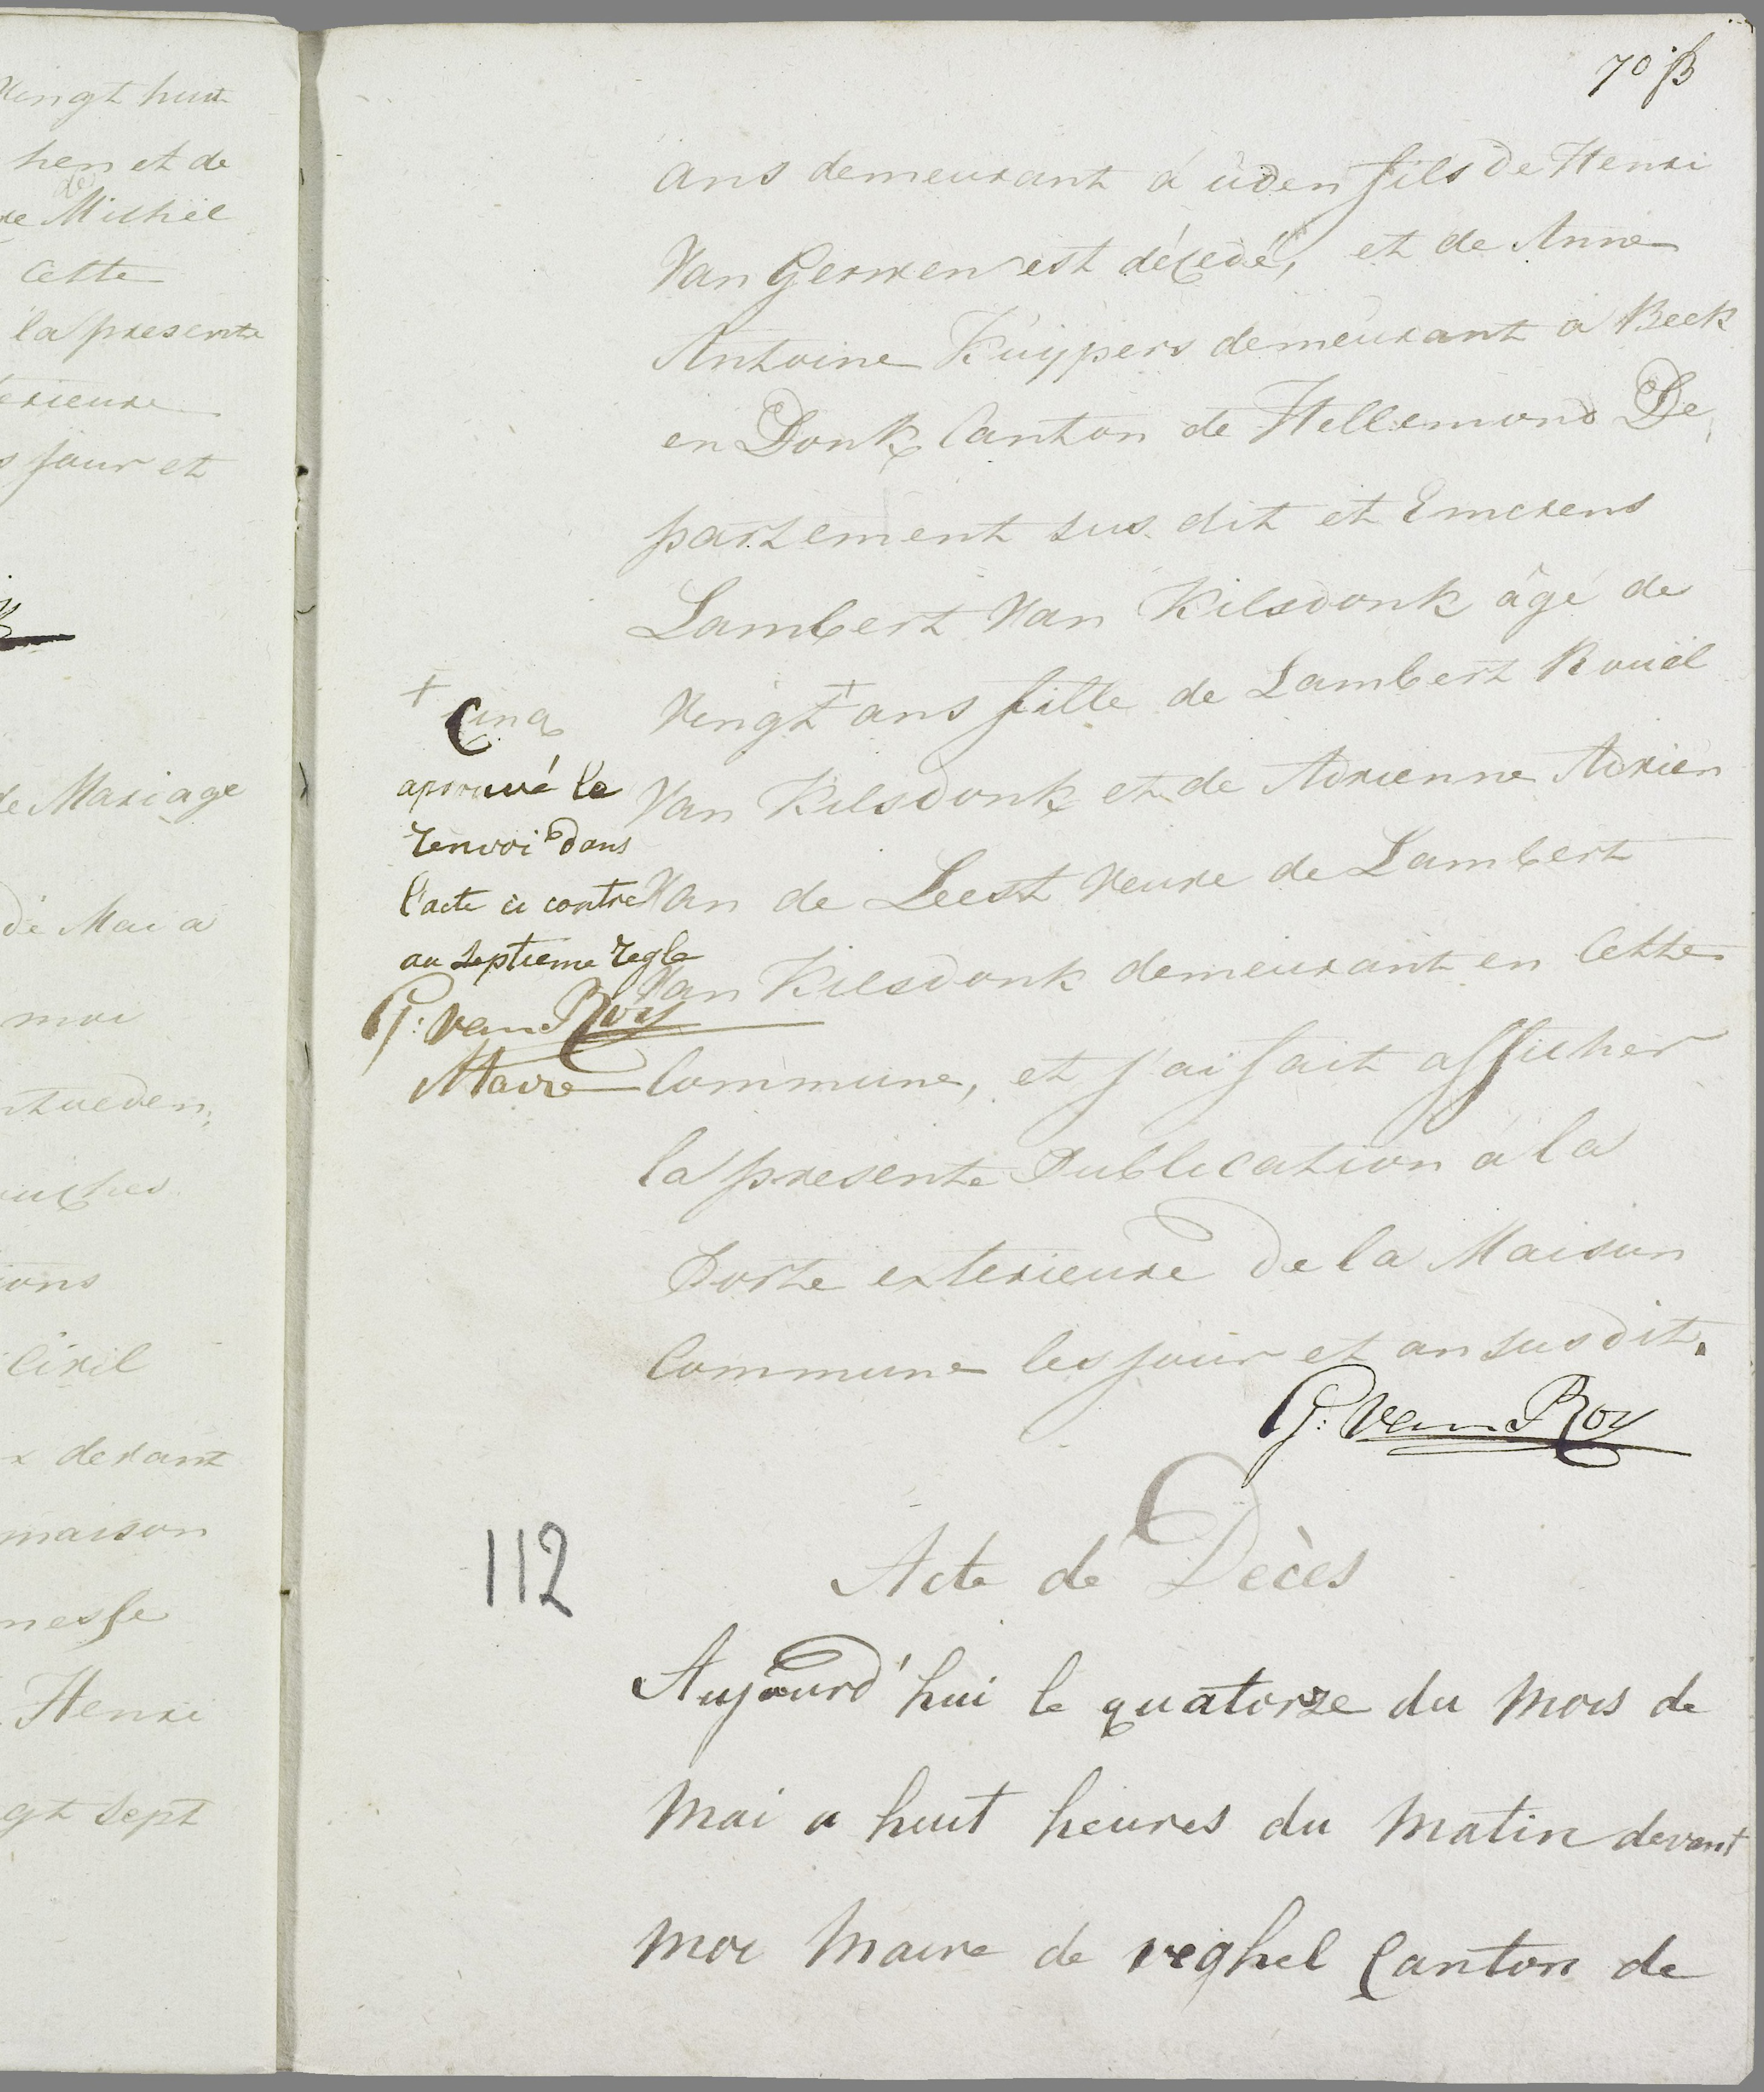 Vingt huit
hen et de
de
de Michiel
Cette
la presente
erieure
s jour et
de Mariage
de Mai a
moi
ntueden,
ouches
ions
Civil
x devant
maison
nesse
Henri
gt sept
70 B
ans demeurant à uden fils de Henri
Van Gerwen est décedé, et de Anne
Antoine Kuypers demeurant a Beek
en Donk Canton de Hellemond De
partement sus dit et Emerens
Lambert Van Kilsdonk âgé de
Vingt + ans fille de Lambert Rouël
Van Kilsdonk et de Adrienne Adrien
Van de Leest Veuve de Lambert
Van Kilsdonk demeurant en Cette
Commune, et j'ai fait afficher
la presente Publication a la
Porte exterieure de la Maison
Commune les jour et an susdit.
G: van Roy
+ Cinq
aprouvé le
renvoi dans
l'acte ci contre
au septieme regle
G: van Roy
Maire
112
Acte de Decès
Aujourd'hui le quatorze du mois de
Mai a huit heures du matin devant
moi maire de veghel Canton de